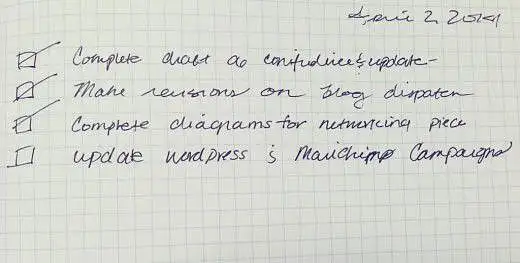 2, 2014
Complete draft conference & update -
Make revisions on blog dispatch
Complete diagrams for networking piece
update wordpress & Mailchimp Campaigns